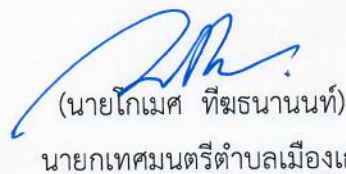 (นายโกเมศ ทีฆธนานนท์)
นายกเทศมนตรีตำบลเมืองเ